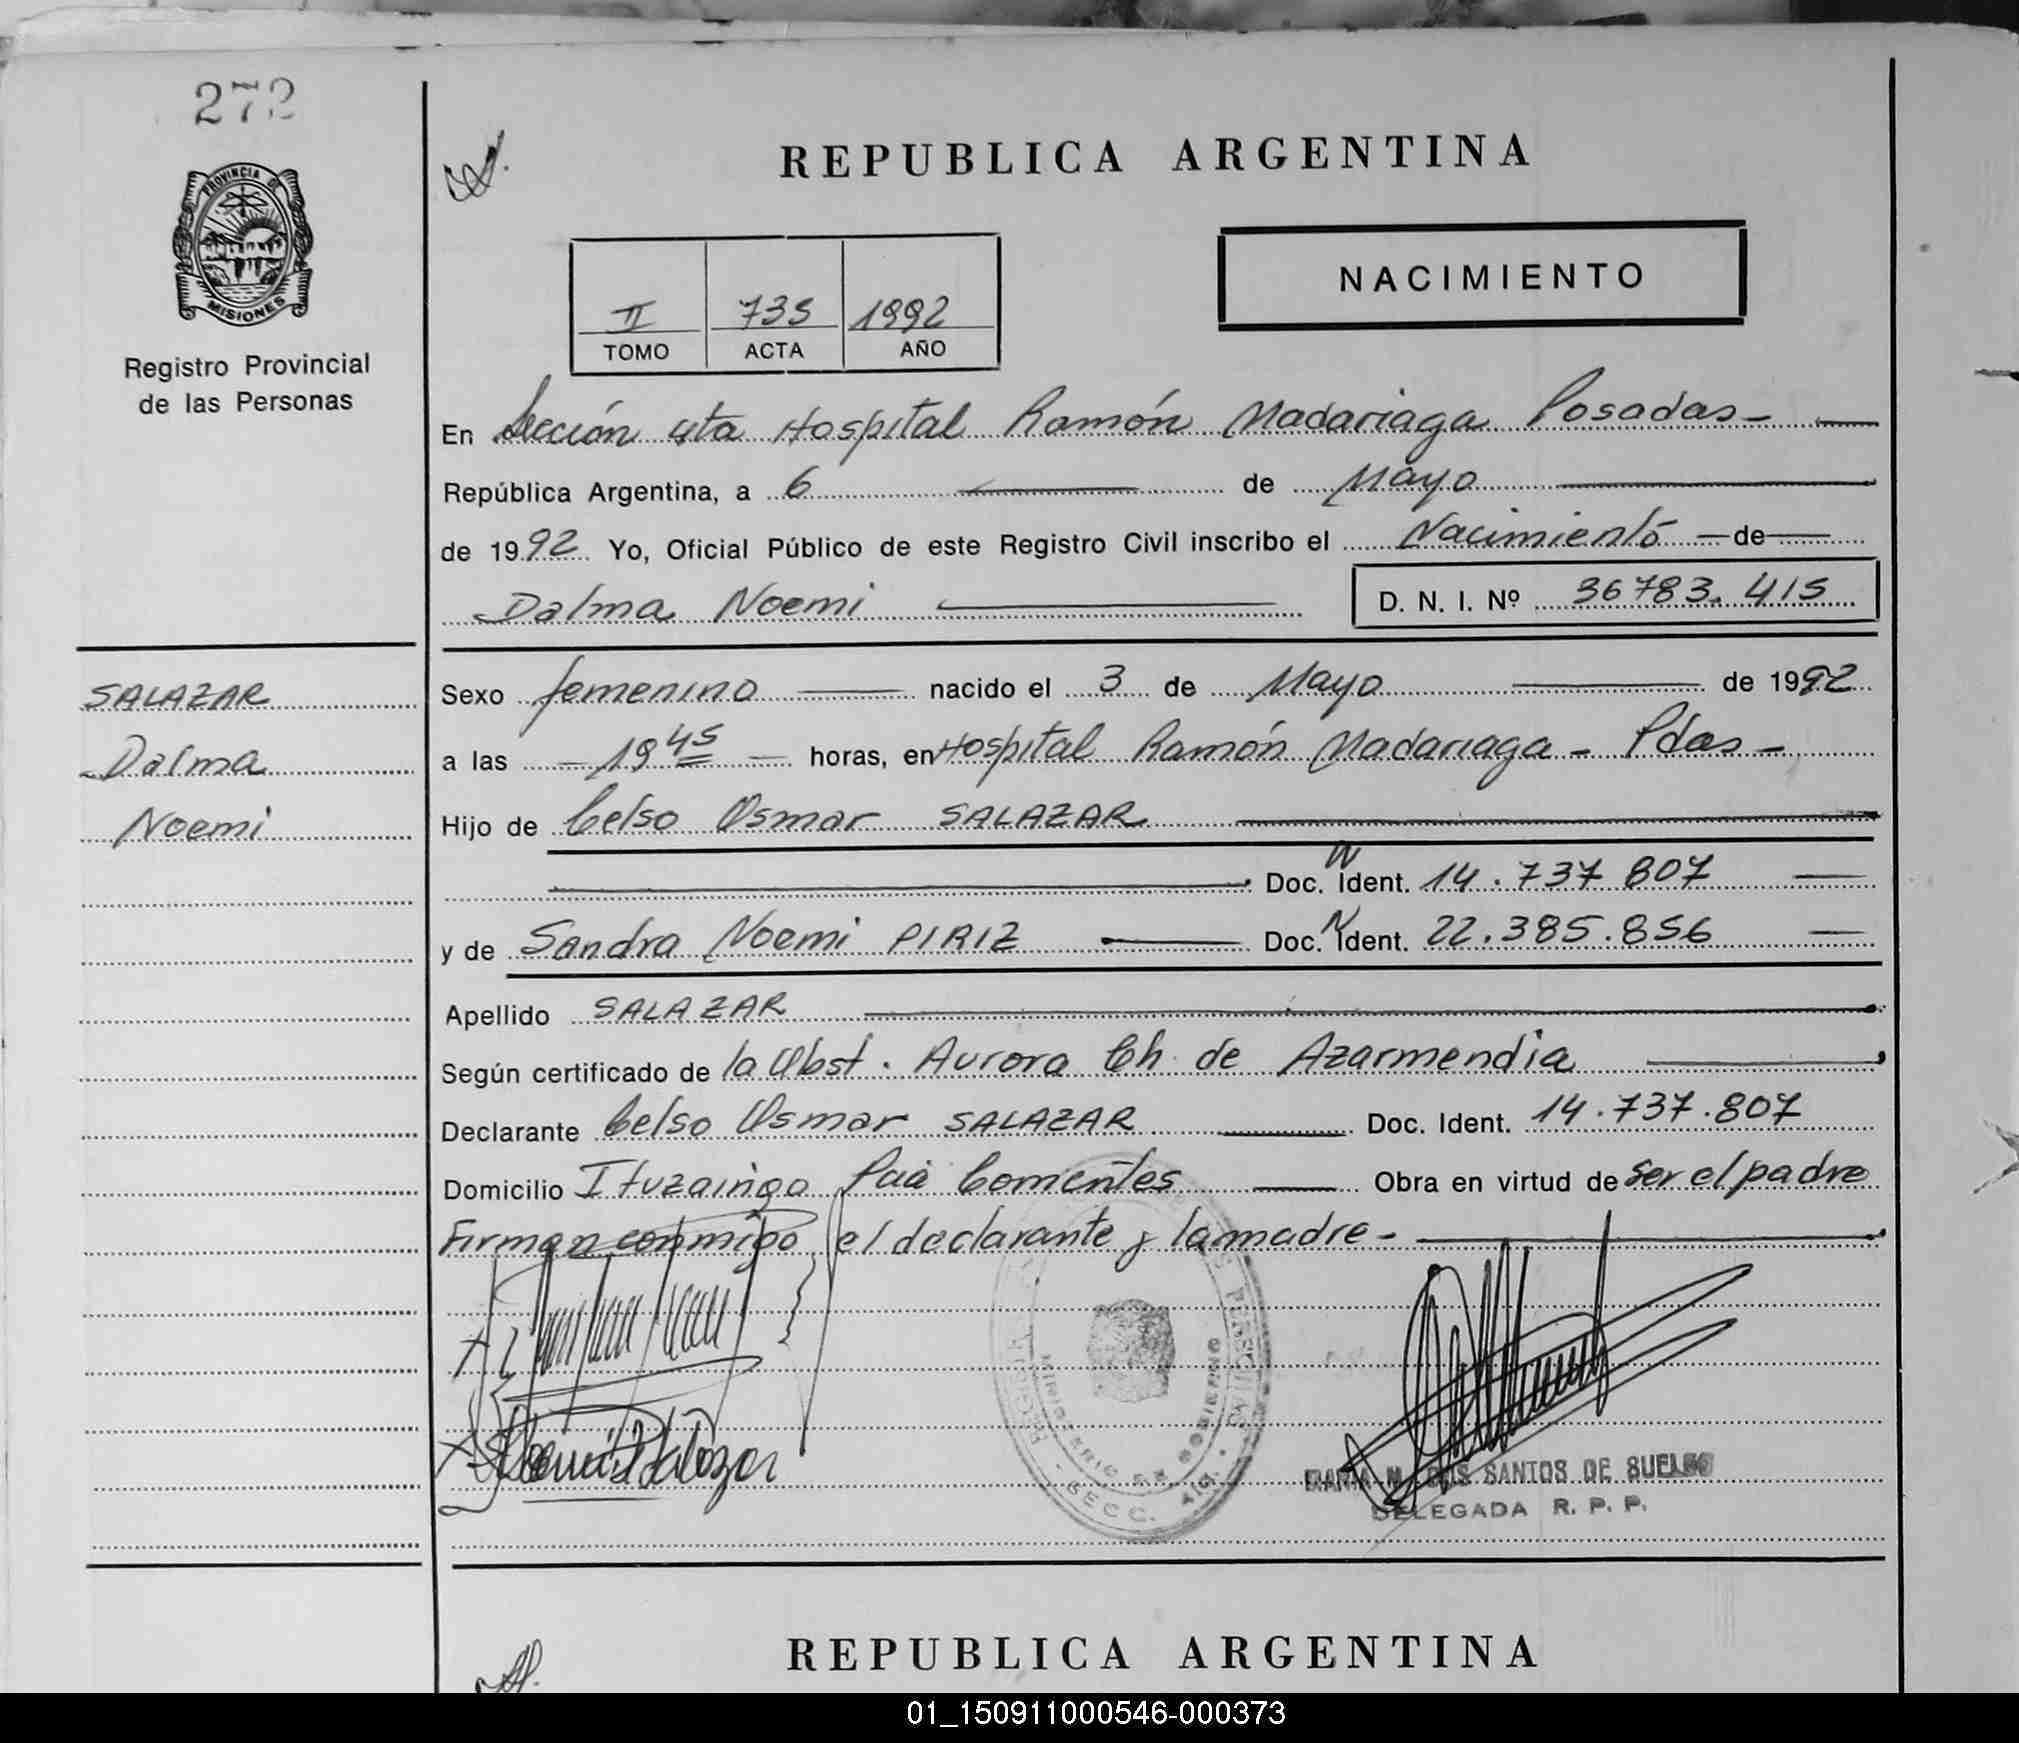 272
PROVINCIA DE
MISIONES
Registro Provincial
de las Personas
SALAZAR
Dalma
Noemi
REPUBLICA ARGENTINA
NACIMIENTO
II 735 1992
TOMO ACTA AÑO
En Sección 4ta Hospital Ramón Madariaga Posadas -
República Argentina, a 6 de Mayo
de 1992 Yo, Oficial Público de este Registro Civil inscribo el Nacimiento - de
Dalma Noemi D. N. I. Nº 36783.415
Sexo femenino nacido el 3 de Mayo de 1992
a las - 19 45 - horas, en Hospital Ramón Madariaga - Pdas -
Hijo de Celso Osmar SALAZAR
Doc. Ident. 14.737 807
y de Sandra Noemi PIRIZ Doc. Ident. 22.385.856
Apellido SALAZAR
Según certificado de la Obst. Aurora Ch. de Azarmendia
Declarante Celso Osmar SALAZAR Doc. Ident. 14.737.807
Domicilio Ituzaingo Pcia Corrientes Obra en virtud de ser el padre
Firman conmigo el declarante y la madre -
PERSONAS
MINISTERIO DE GOBIERNO
SECC. 4ta.
MARIA M. DOS SANTOS DE SUELDO
DELEGADA R. P. P.
REPUBLICA ARGENTINA
01_150911000546-000373